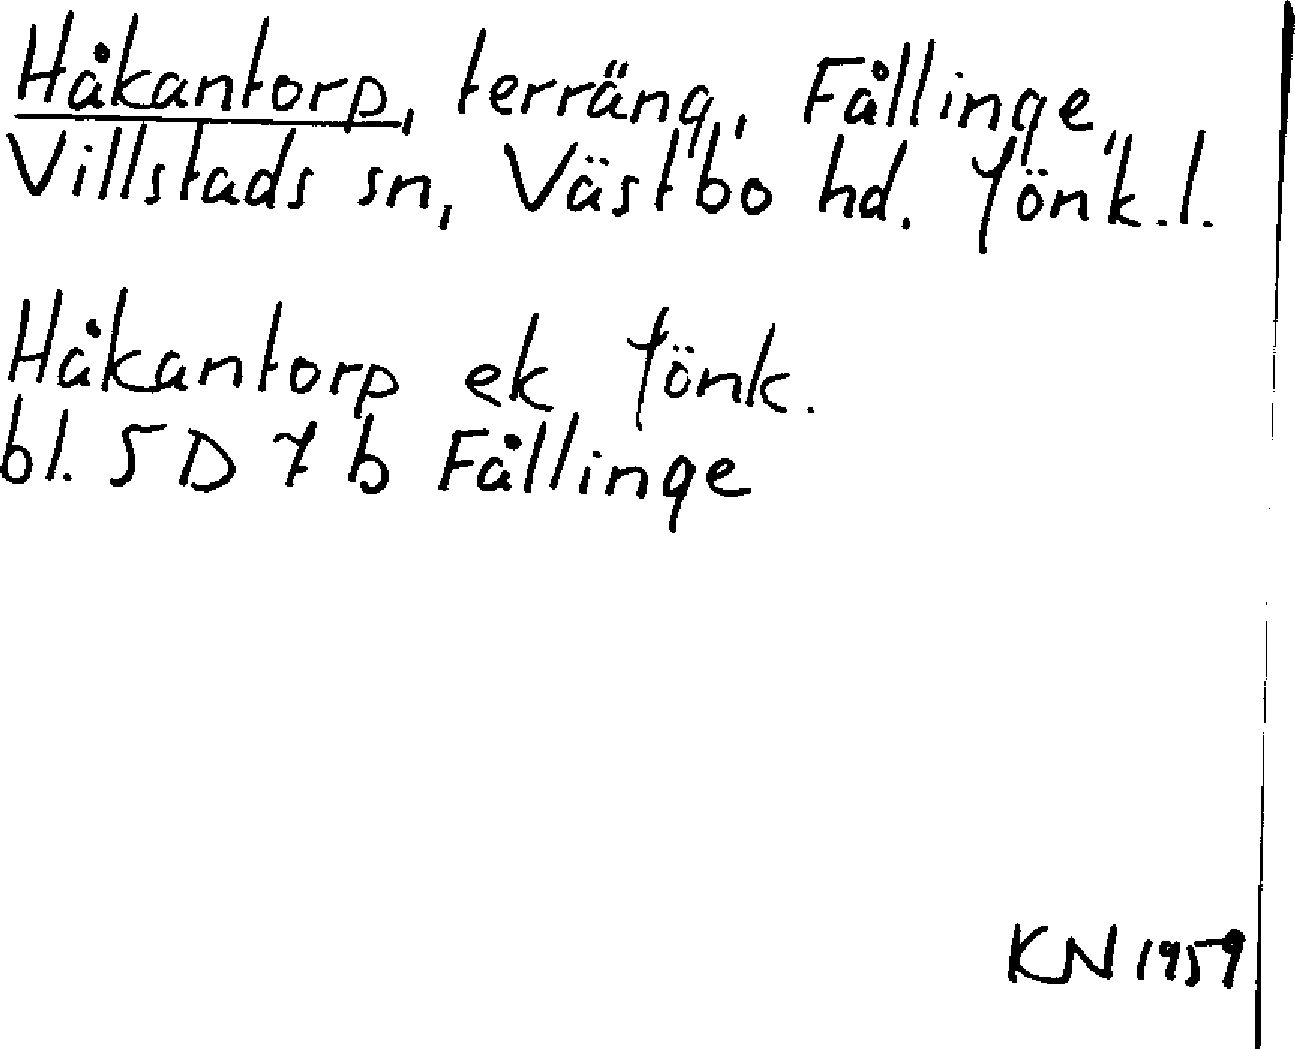 Håkantorp, terräng, Fållinge,
Villstads sn, Västbo hd. Jönk.l.
Håkantorp ek Jönk.
bl. 5 D 7 b Fållinge
KN 1959